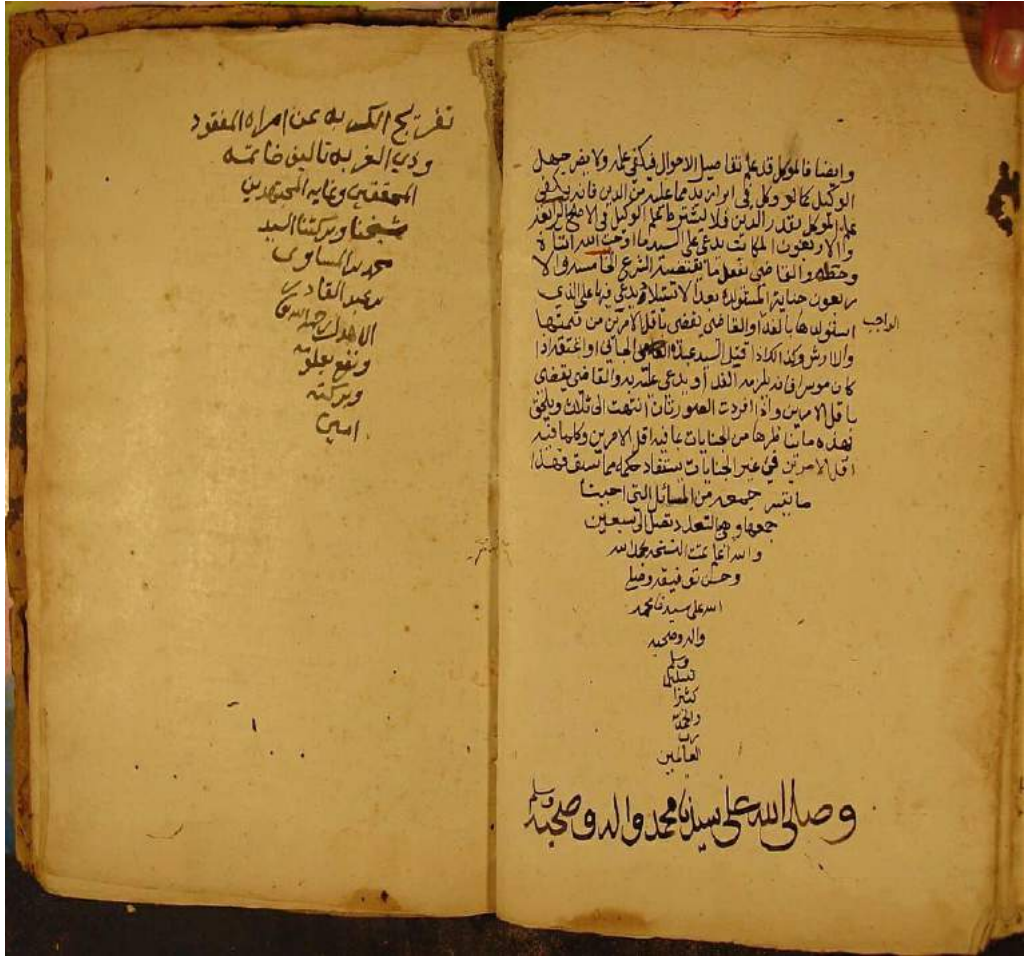 وايضا فالموكل قد علم تفاصيل الاحوال فيكفي علمه ولا يضر جهل
الوكيل كما لو وكل في ابراء زيد مما عليه من الدين فانه يكفي
علم الموكل بقدر الدين فلا يشترط علم الوكيل في الاصح الرابعة
والاربعون المكاتب يدعي على السيد ما اوجب الله ايتاه
وحطه والقاضي يفعل ما يقتضيه الشرع الخامسة والا
ربعون جناية المستولدة بعد الاستيلاد يدعي فيها على الذي
استولدها بالفدا والقاضي يقضي باقل الامرين من قيمتها
الواجب
والارش وكذا اذا قتل السيد عبده الجاني او اعتقه اذا
كان موسرا فانه يلزمه الفدا و يدعي عليه به والقاضي يقضي
باقل الامرين واذا افردت الصورتان انتهت الى ثلاث ويلحق
بهذه ما يناظرها من الجنايات بما فيه اقل الامرين وكلما فيه
اقل الامرين في غير الجنايات يستفاد حكمه مما سبق فهذا
ما تيسر جمعه من المسائل التي احببنا
جمعها وهي التعدد تصل الى سبعين
والله اعلم تمت النسخه بحمد الله
وحسن توفيقه وصلى
الله على سيدنا محمد
واله وصحبه
وسلم
تسليما
كثيرا
والحمد لله
رب
العالمين
وصلى الله على سيدنا محمد واله وصحبه وسلم
تفريج الكربه عن امراه المفقود
وذي الغربه تاليف خاتمه
المحققين وغايه المجتهدين
شيخنا وبركتنا السيد
محمد المساوى
بن عبد القادر
الاهدل رحمه الله
ونفع بعلومه
وبركته
امين